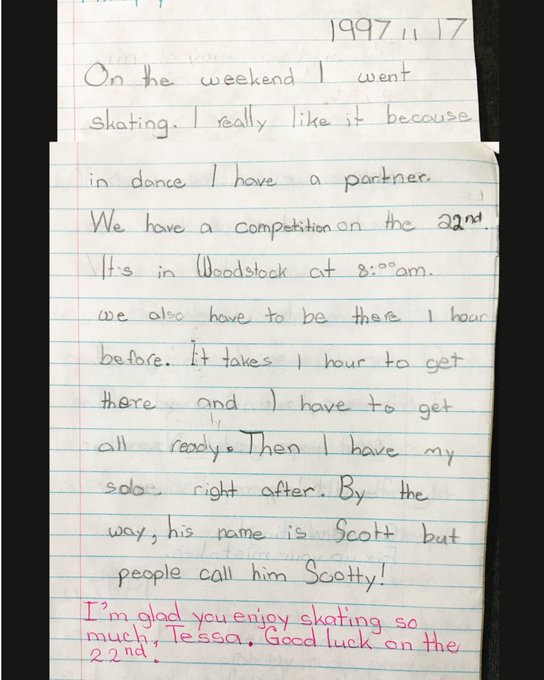 1997 11 17
On the weekend I went
skating. I really like it because
in dance I have a partner.
We have a competition on the 22nd.
It's in Woodstock at 8:00am.
we also have to be there 1 hour
before. It takes 1 hour to get
there and I have to get
all ready. Then I have my
solo right after. By the
way, his name is Scott but
people call him Scotty!
I'm glad you enjoy skating so
much, Tessa. Good luck on the
22nd.